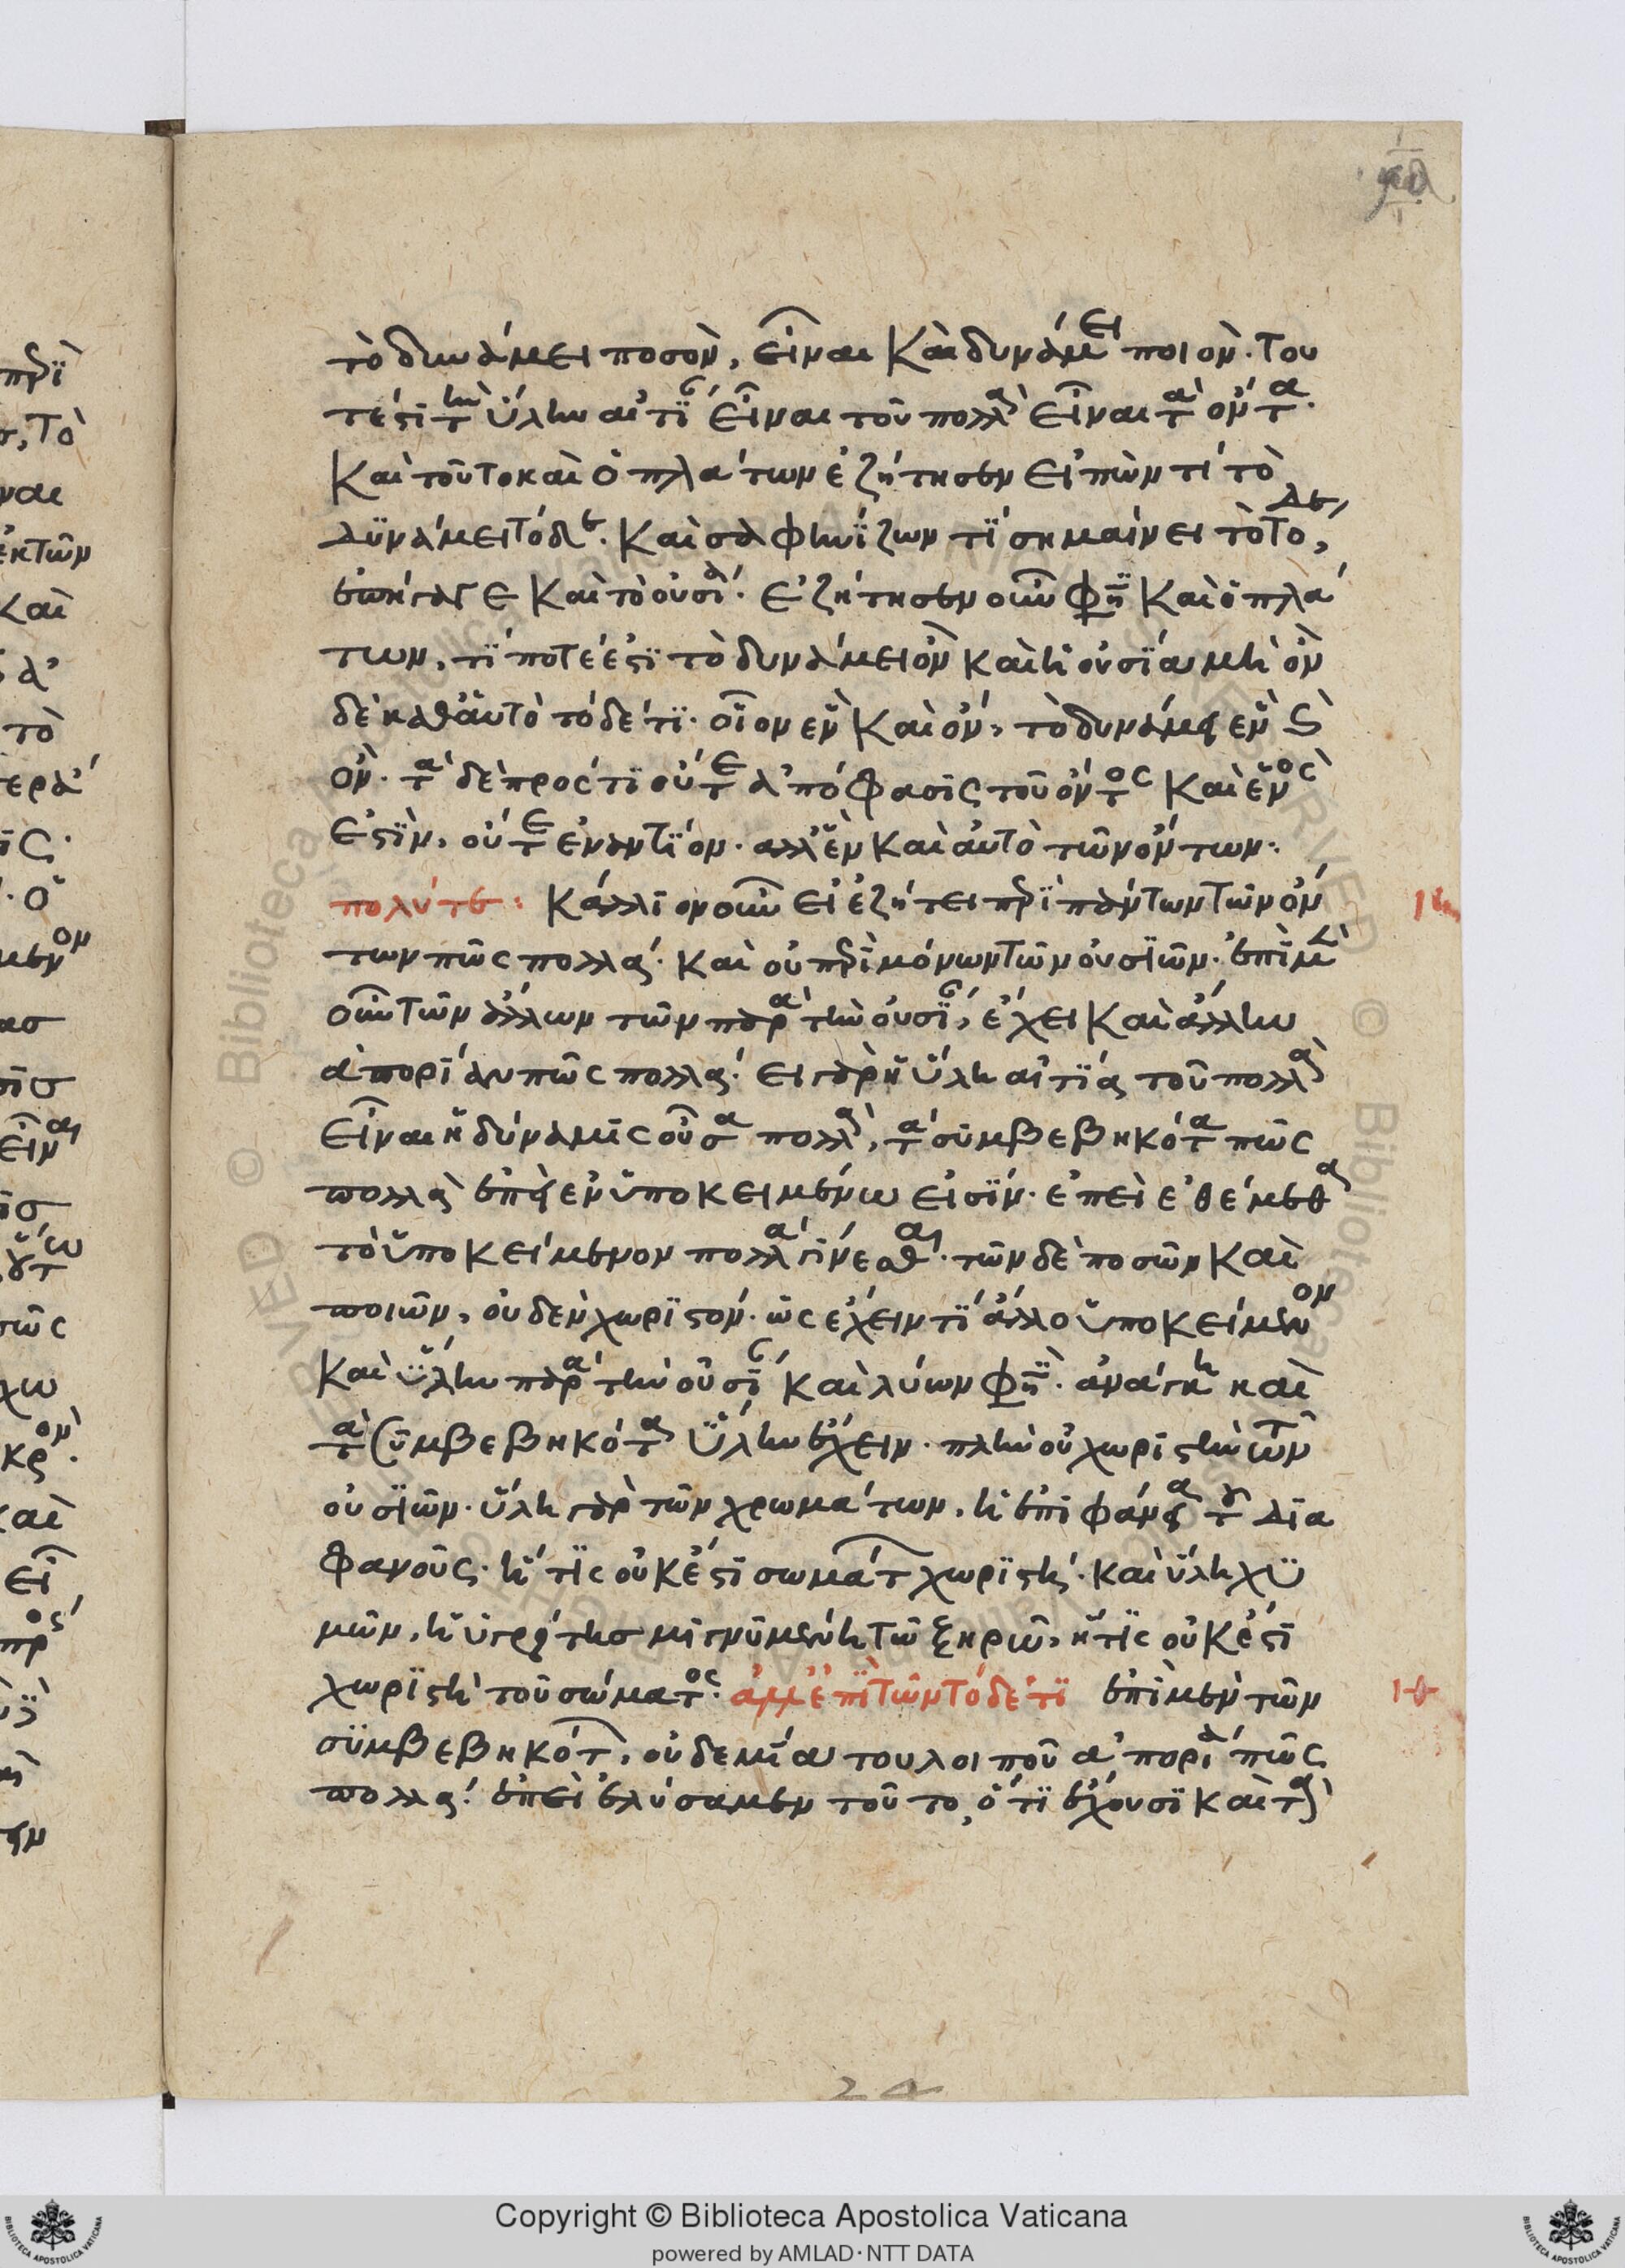 τὸ δυνάμει ποσὸν, εἶναι καὶ δυνάμει ποιὸν. του
τέστι τὴν ὕλην αἰτίαν εἶναι τοῦ πολλὰ εἶναι τὰ ὄντα.
Καὶ τοῦτο καὶ ὁ πλάτων ἐζήτησεν εἰπὼν τί τὸ
δυνάμει τόδε. Καὶ σαφηνίζων τί σημαίνει τὸ τόδε,
ἐπήγαγε καὶ τὸ οὐσία. ἐζήτησεν οὖν φησὶ καὶ ὁ πλά
των, τί ποτέ ἐστι τὸ δυνάμει ὂν καὶ ἡ οὐσία, μὴ ὂν
δὲ καθ' αὑτὸ τόδε τι. οἷον ἓν καὶ ὄν, τὸ δυνάμει ἓν καὶ
ὄν. τὰ δὲ πρός τι οὔτε ἀπόφασις τοῦ ὄντος καὶ ἑνὸς
ἐστὶν, οὔτε ἐναντίον. ἀλλ' ἓν καὶ αὐτὸ τῶν ὄντων.
πολύ τε: Κάλλιον οὖν εἰ ἐζήτει περὶ πάντων τῶν ὄν
των πῶς πολλά. καὶ οὐ περὶ μόνων τῶν οὐσιῶν. ἐπὶ μὲν
οὖν τῶν ἄλλων τῶν παρὰ τὴν οὐσίαν, ἔχει καὶ ἄλλην
ἀπορίαν πῶς πολλά. εἰ γὰρ ἡ ὕλη αἰτία τοῦ πολλὰ
εἶναι ἡ δυνάμις οὖσα πολλὰ, τὰ συμβεβηκότα πῶς
πολλὰ ἐπεὶ ἐν ὑποκειμένω εἰσίν. ἐπεὶ ἐθέμεθα
τὸ ὑποκείμενον πολλὰ γίνεσθαι. τῶν δὲ ποσῶν καὶ
ποιῶν, οὐδὲν χωριστόν. ὡς ἔχειν τί ἄλλο ὑποκείμενον
Καὶ ὕλην παρὰ τὴν οὐσίαν καὶ λύων φησὶ. ἀνάγκη καὶ
τὰ συμβεβηκότα ὕλην ἔχειν. πλὴν οὐ χωριστὴν τῶν
οὐσιῶν. ὕλη γὰρ τῶν χρωμάτων, ἡ ἐπιφάνεια τοῦ δια
φανοῦς. ἥτις οὐκ ἔστι σωμάτων χωριστή. καὶ ὕλη χυ
μῶν, ἡ ὑγρότης μιγνυμένη τῶ ξηρῶ, ἥτις οὐκ ἔστι
χωριστὴ τοῦ σώματος. ἀλλ' ἐπὶ τῶν τόδε τι ἐπὶ μὲν τῶν
συμβεβηκότων, οὐδεμία του λοιποῦ ἀπορία πῶς
πολλά. ἐπεὶ ἐλύσαμεν τοῦτο, ὅτι ἔχουσι καὶ τὰ
24
Copyright © Biblioteca Apostolica Vaticana
powered by AMLAD·NTT DATA